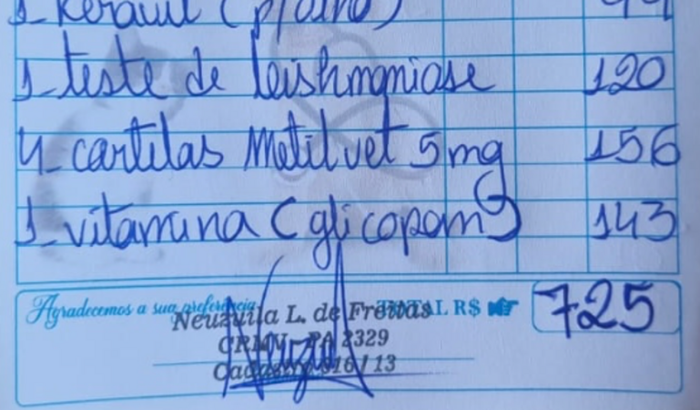 1- teste de leishmaniose 120
4- cartelas Metilvet 5mg 156
1- vitamina (glicopan) 143
Agradecemos a sua preferência TOTAL R$ 725
L. de Freitas
CRMV-PA 2329
/13